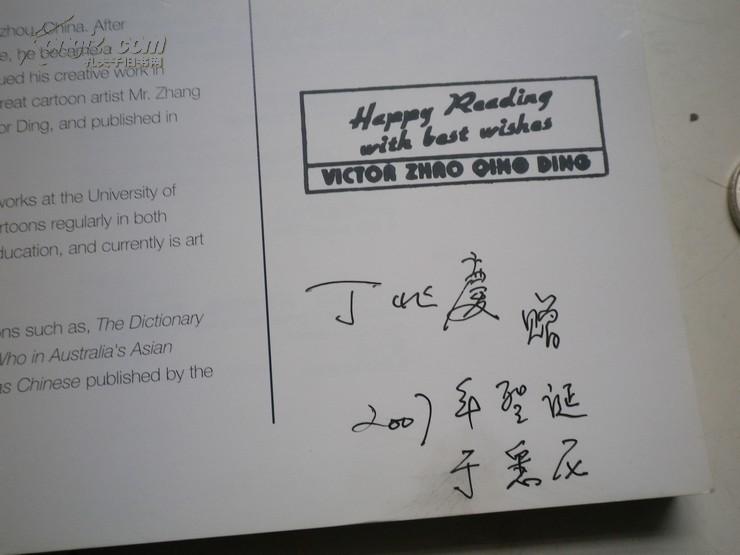 zhou, China. After
e, he became a
ued his creative work in
reat cartoon artist Mr. Zhang
or Ding, and published in
works at the University of
rtoons regularly in both
ducation, and currently is art
ons such as, The Dictionary
Who in Australia's Asian
as Chinese published by the
Happy Reading
with best wishes
VICTOR ZHAO QING DING
丁兆庆 赠
2007年聖诞
于悉尼